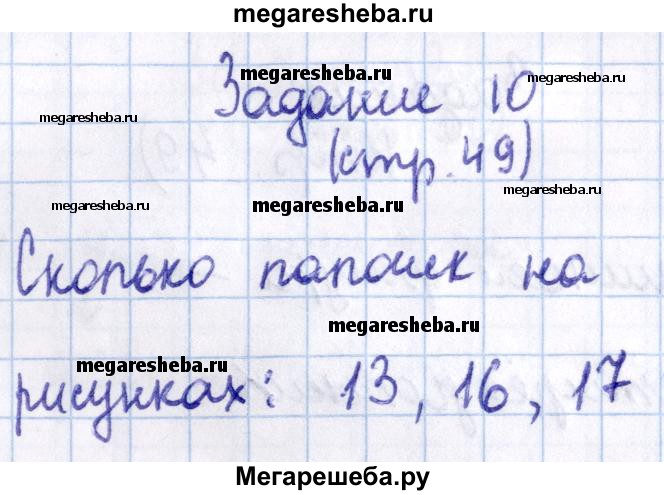 megaresheba.ru
megaresheba.ru
megaresheba.ru
Задание 10
megaresheba.ru
(стр. 49)
megaresheba.ru
megaresheba.ru
megaresheba.ru
Сколько палочек на
megaresheba.ru
megaresheba.ru
рисунках: 13, 16, 17
Мегарешеба.ру